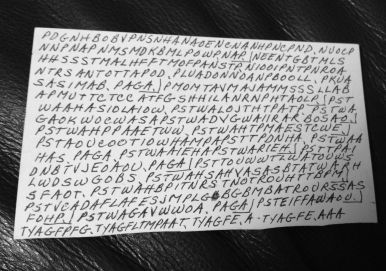 PDGNHBOBVPNSNHANAOENCNANHPNCPND. NUOCP
NNPNAPNMSMDKBMLPOWPNAP. NEENTGBTMLS
HHSSSTMALHFFTMOFPANSTPANIOOIPNTPNROA
NTRSANTOTTAPOD. PLUADONNOANPBOOLL. PKUA
SASIMAB. PAGA. PMOMTAVMAJAMMSSSLLAB
APMUTTCTCCATFGSHHILANRNPHTAOLP PST
PSTWALOJTHTPATP PSTWA
GAOKWOCWASAPSTWADVGWAIIRARBOSAO.
PSTWAHPPAAETWW. PSTWAHTPMAESTCWE.
PSTAOUEOOTIOWHAMPAPSTTPDNHA. PSTWAB
HAS. PAGA. PSTWAAIEHAPSTWARIEH PSTTOU
DNBTVJEOAOU. PAGA PSTTOUWWTLWATOUWS
LWDSWWGOBS. PSTWAHSAHVASASBTATWBARH
SFAOT. PSTWAHBPITNRSTNOTROUHFTBPMA
PSTVCADAFLAFESJMPLGBGBMBATROURSSAS
FOHP. PSTWAGAVWWOA. PAGA PSTEIFFAWAOU.
TYAGFPFG. TYAGFLTMPAAT. TYAGFE.A.TYAGFE.AAA